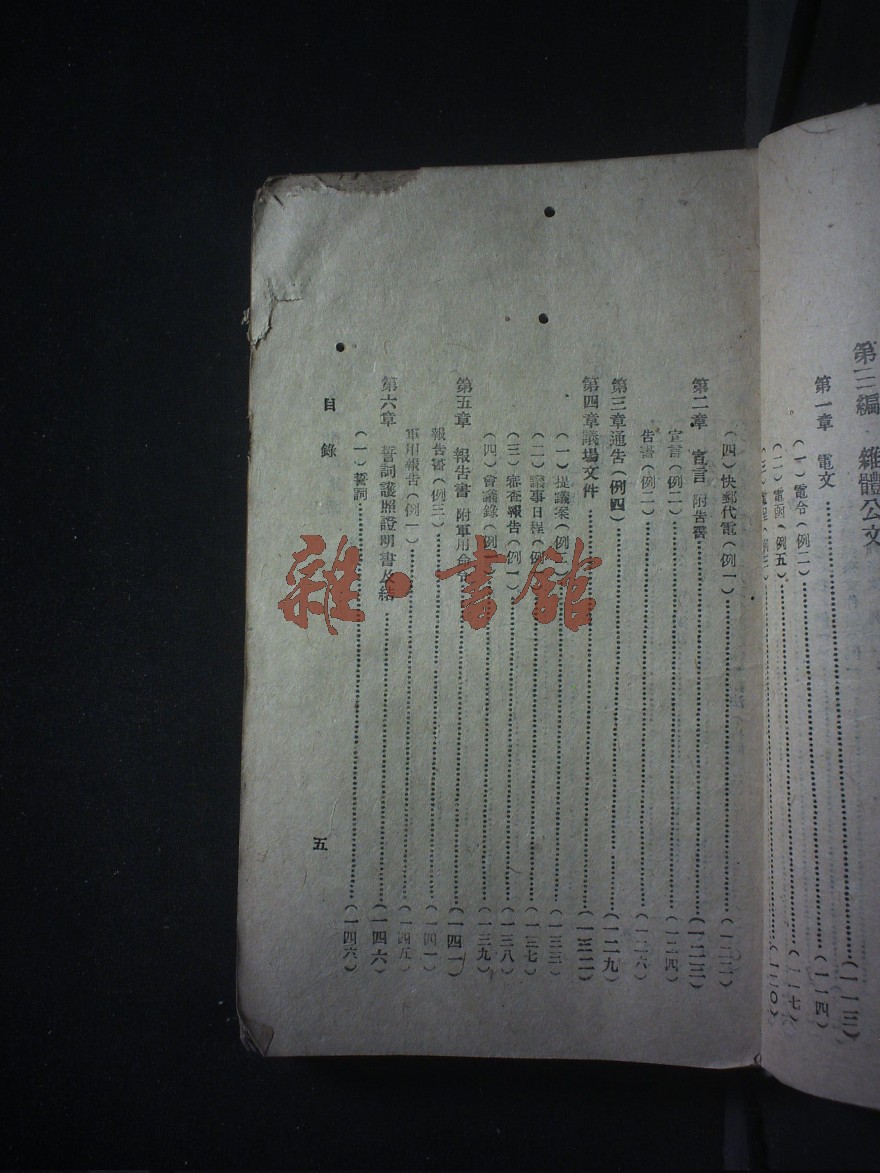 第三編 雜體公文……(一一三)
第一章 電文……(一一四)
(一)電令(例二)……(一一七)
(二)電函(例五)……
……(一二〇)
(四)快郵代電(例一)……(一二二)
第二章 宣言 附告書……(一二三)
宣言(例二)……(一二四)
告書(例二)……(一二六)
第三章通告(例四)……(一二九)
第四章議場文件……(一三二)
(一)提議案(例……(一三三)
(二)議事日程(例……(一三七)
(三)審查報告(例一)……(一三八)
(四)會議錄(例……(一三九)
第五章 報告書 附軍用……(一四一)
報告書(例三)……(一四一)
軍用報告(例一)……(一四五)
第六章 誓詞護照證明書及結……(一四六)
(一)誓詞……(一四六)
目錄
五
雜·書館